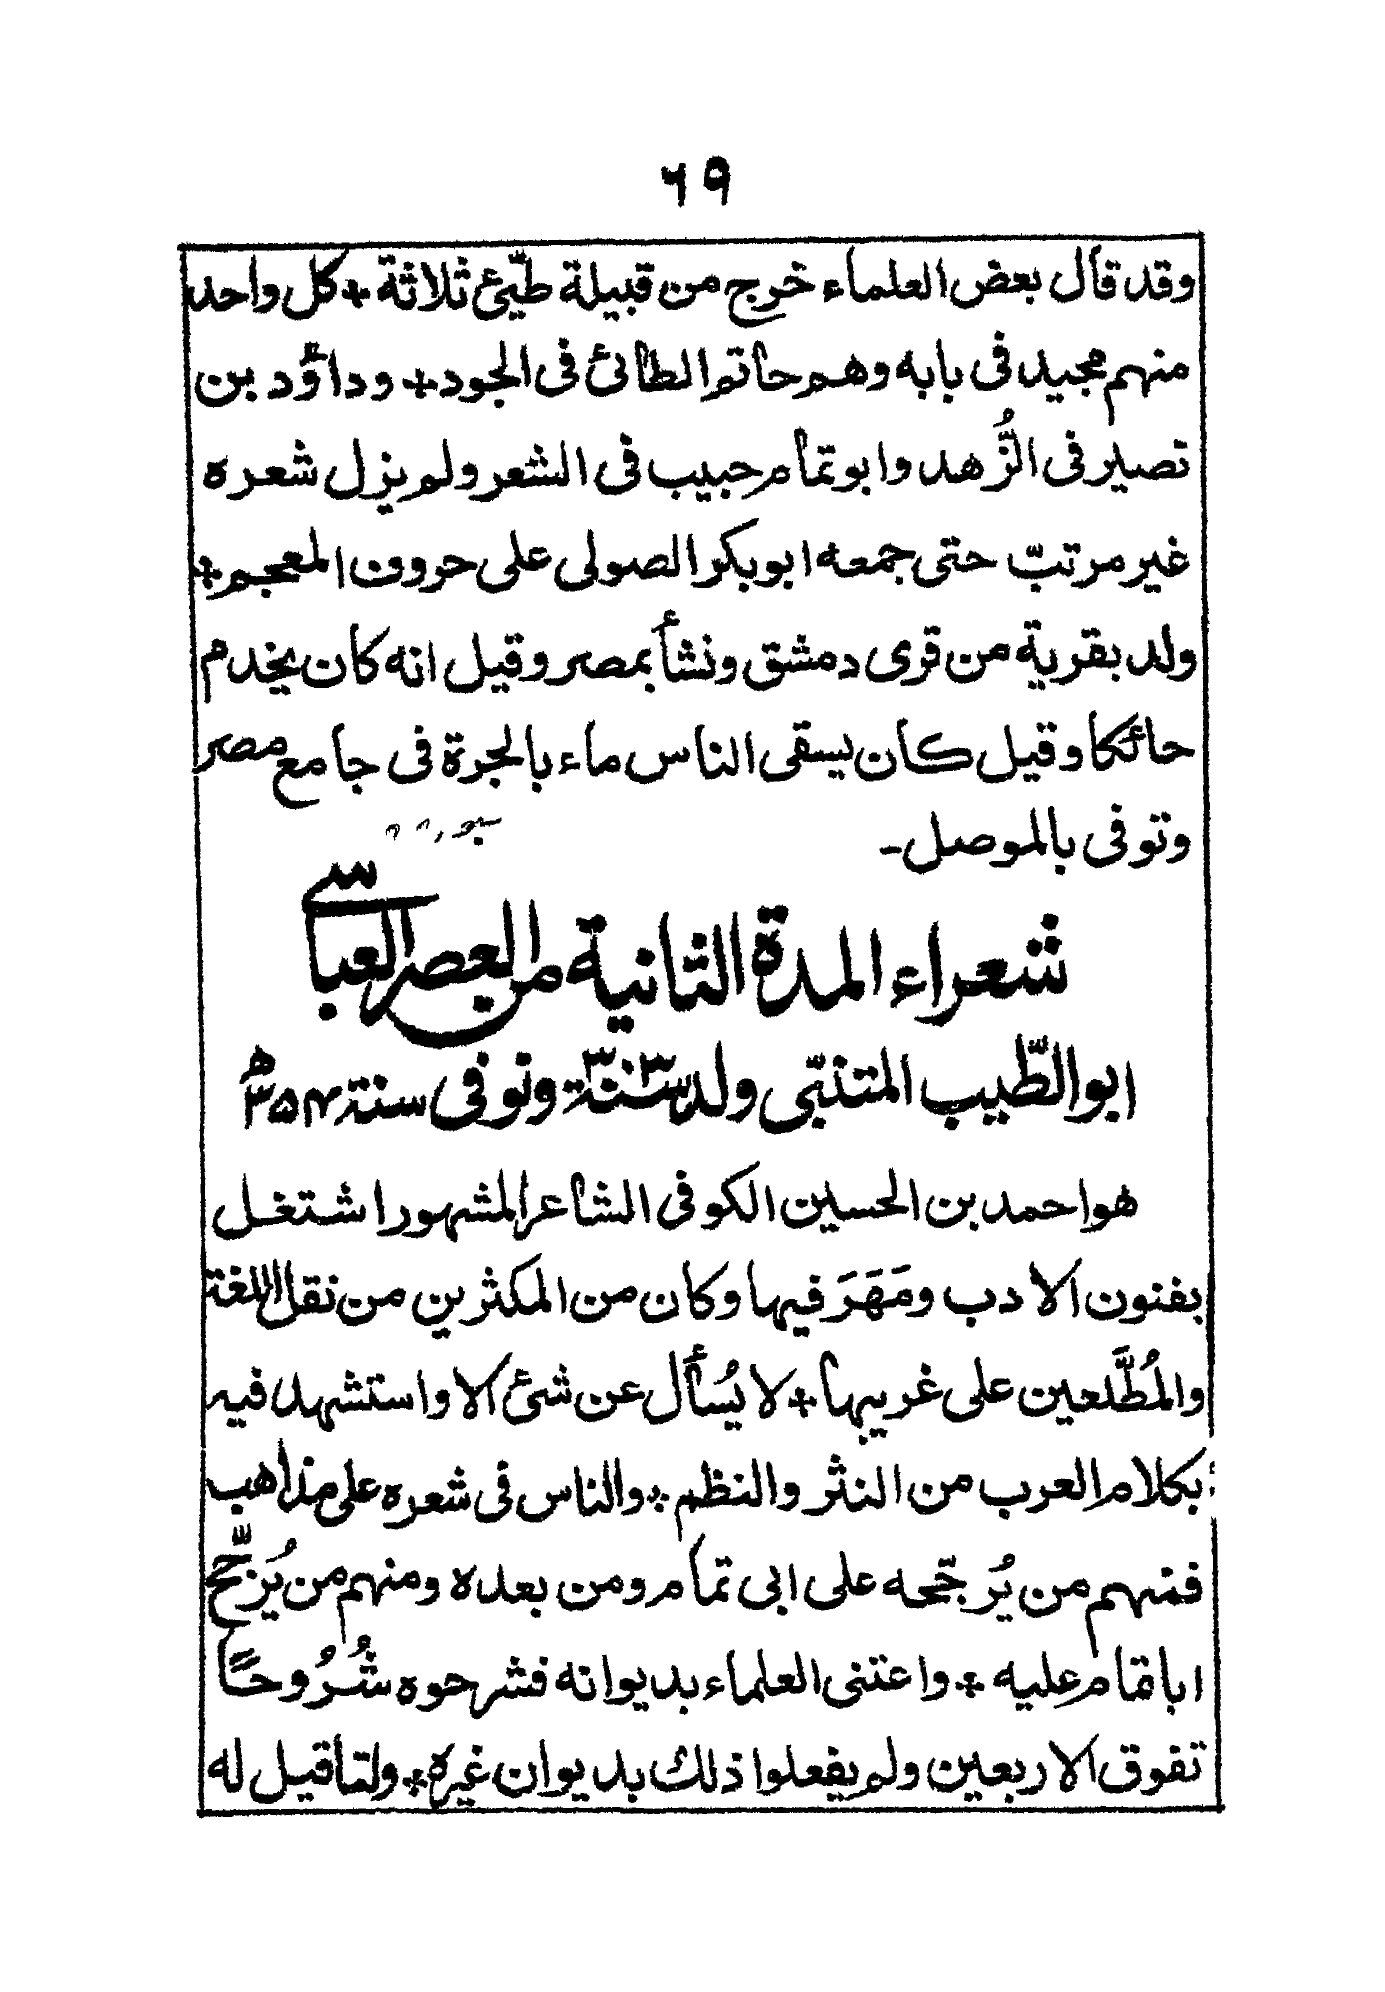 ٦٩
وقد قال بعض العلماء خرج من قبيلة طيّئ ثلاثة + كل واحد
منهم مجيد فى بابه وهم حاتم الطائى فى الجود + وداؤد بن
نصير فى الزُّهد وابو تمام حبيب فى الشعر ولم يزل شعره
غير مرتبّ حتى جمعه ابو بكر الصولى على حروف المعجم +
ولد بقرية من قرى دمشق ونشأ بمصر وقيل انه كان يخدم
حائكا وقيل كان يسقى الناس ماء بالجرة فى جامع مصر
وتوفى بالموصل۔
شعراء المدة الثانية من العصر العباسي
ابو الطّيب المتنبّى ولد سنة ٣٠٣ وتوفى سنة ٣٥٤ھ
هو احمد بن الحسين الكوفى الشاعر المشهور اشتغل
بفنون الادب ومَهَرَ فيها وكان من المكثرين من نقل اللغة
والمُطَّلعين على غريبها + لا يُسأل عن شئ الا واستشهد فيه
بكلام العرب من النثر والنظم + والناس فى شعره على مذاهب
فمنهم من يُرجّحه على ابى تمام ومن بعده ومنهم من يُرَجّح
ابا تمام عليه + واعتنى العلماء بديوانه فشرحوه شُرُوحًا
تفوق الاربعين ولم يفعلوا ذلك بديوان غيره + ولمّا قيل له